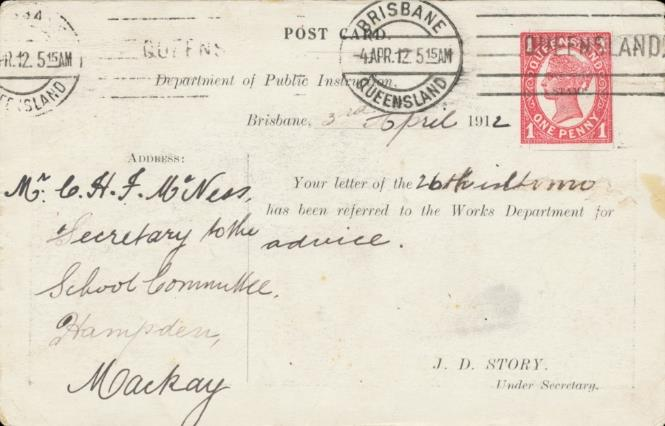 POST CARD.
BRISBANE
4 APR. 12. 5 15AM
QUEENSLAND
PR. 12. 5 15AM
QUEENSLAND
QUEENS
QUEENSLAND
QUEENSLAND
ONE PENNY
1 1
Department of Public Instruction,
Brisbane, 3rd April 1912
ADDRESS:
Mr. C. H. F. McNess,
Secretary to the
School Committee,
Hampden,
Mackay
Your letter of the 26th ultimo
has been referred to the Works Department for
advice.
J. D. STORY.
Under Secretary.